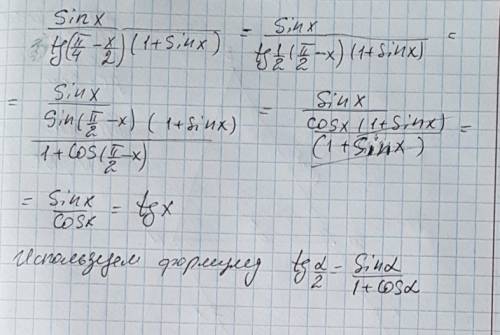 sinx / (tg(π/4 − x/2)(1+sinx)) = sinx / (tg 1/2(π/2 − x)(1+sinx)) =
= sinx / (sin(π/2 − x)(1+sinx) / (1+cos(π/2 − x))) = sinx / (cosx(1+sinx) / (1+sinx)) =
= sinx/cosx = tgx
Используем формулу tg α/2 = sinα / (1+cosα)